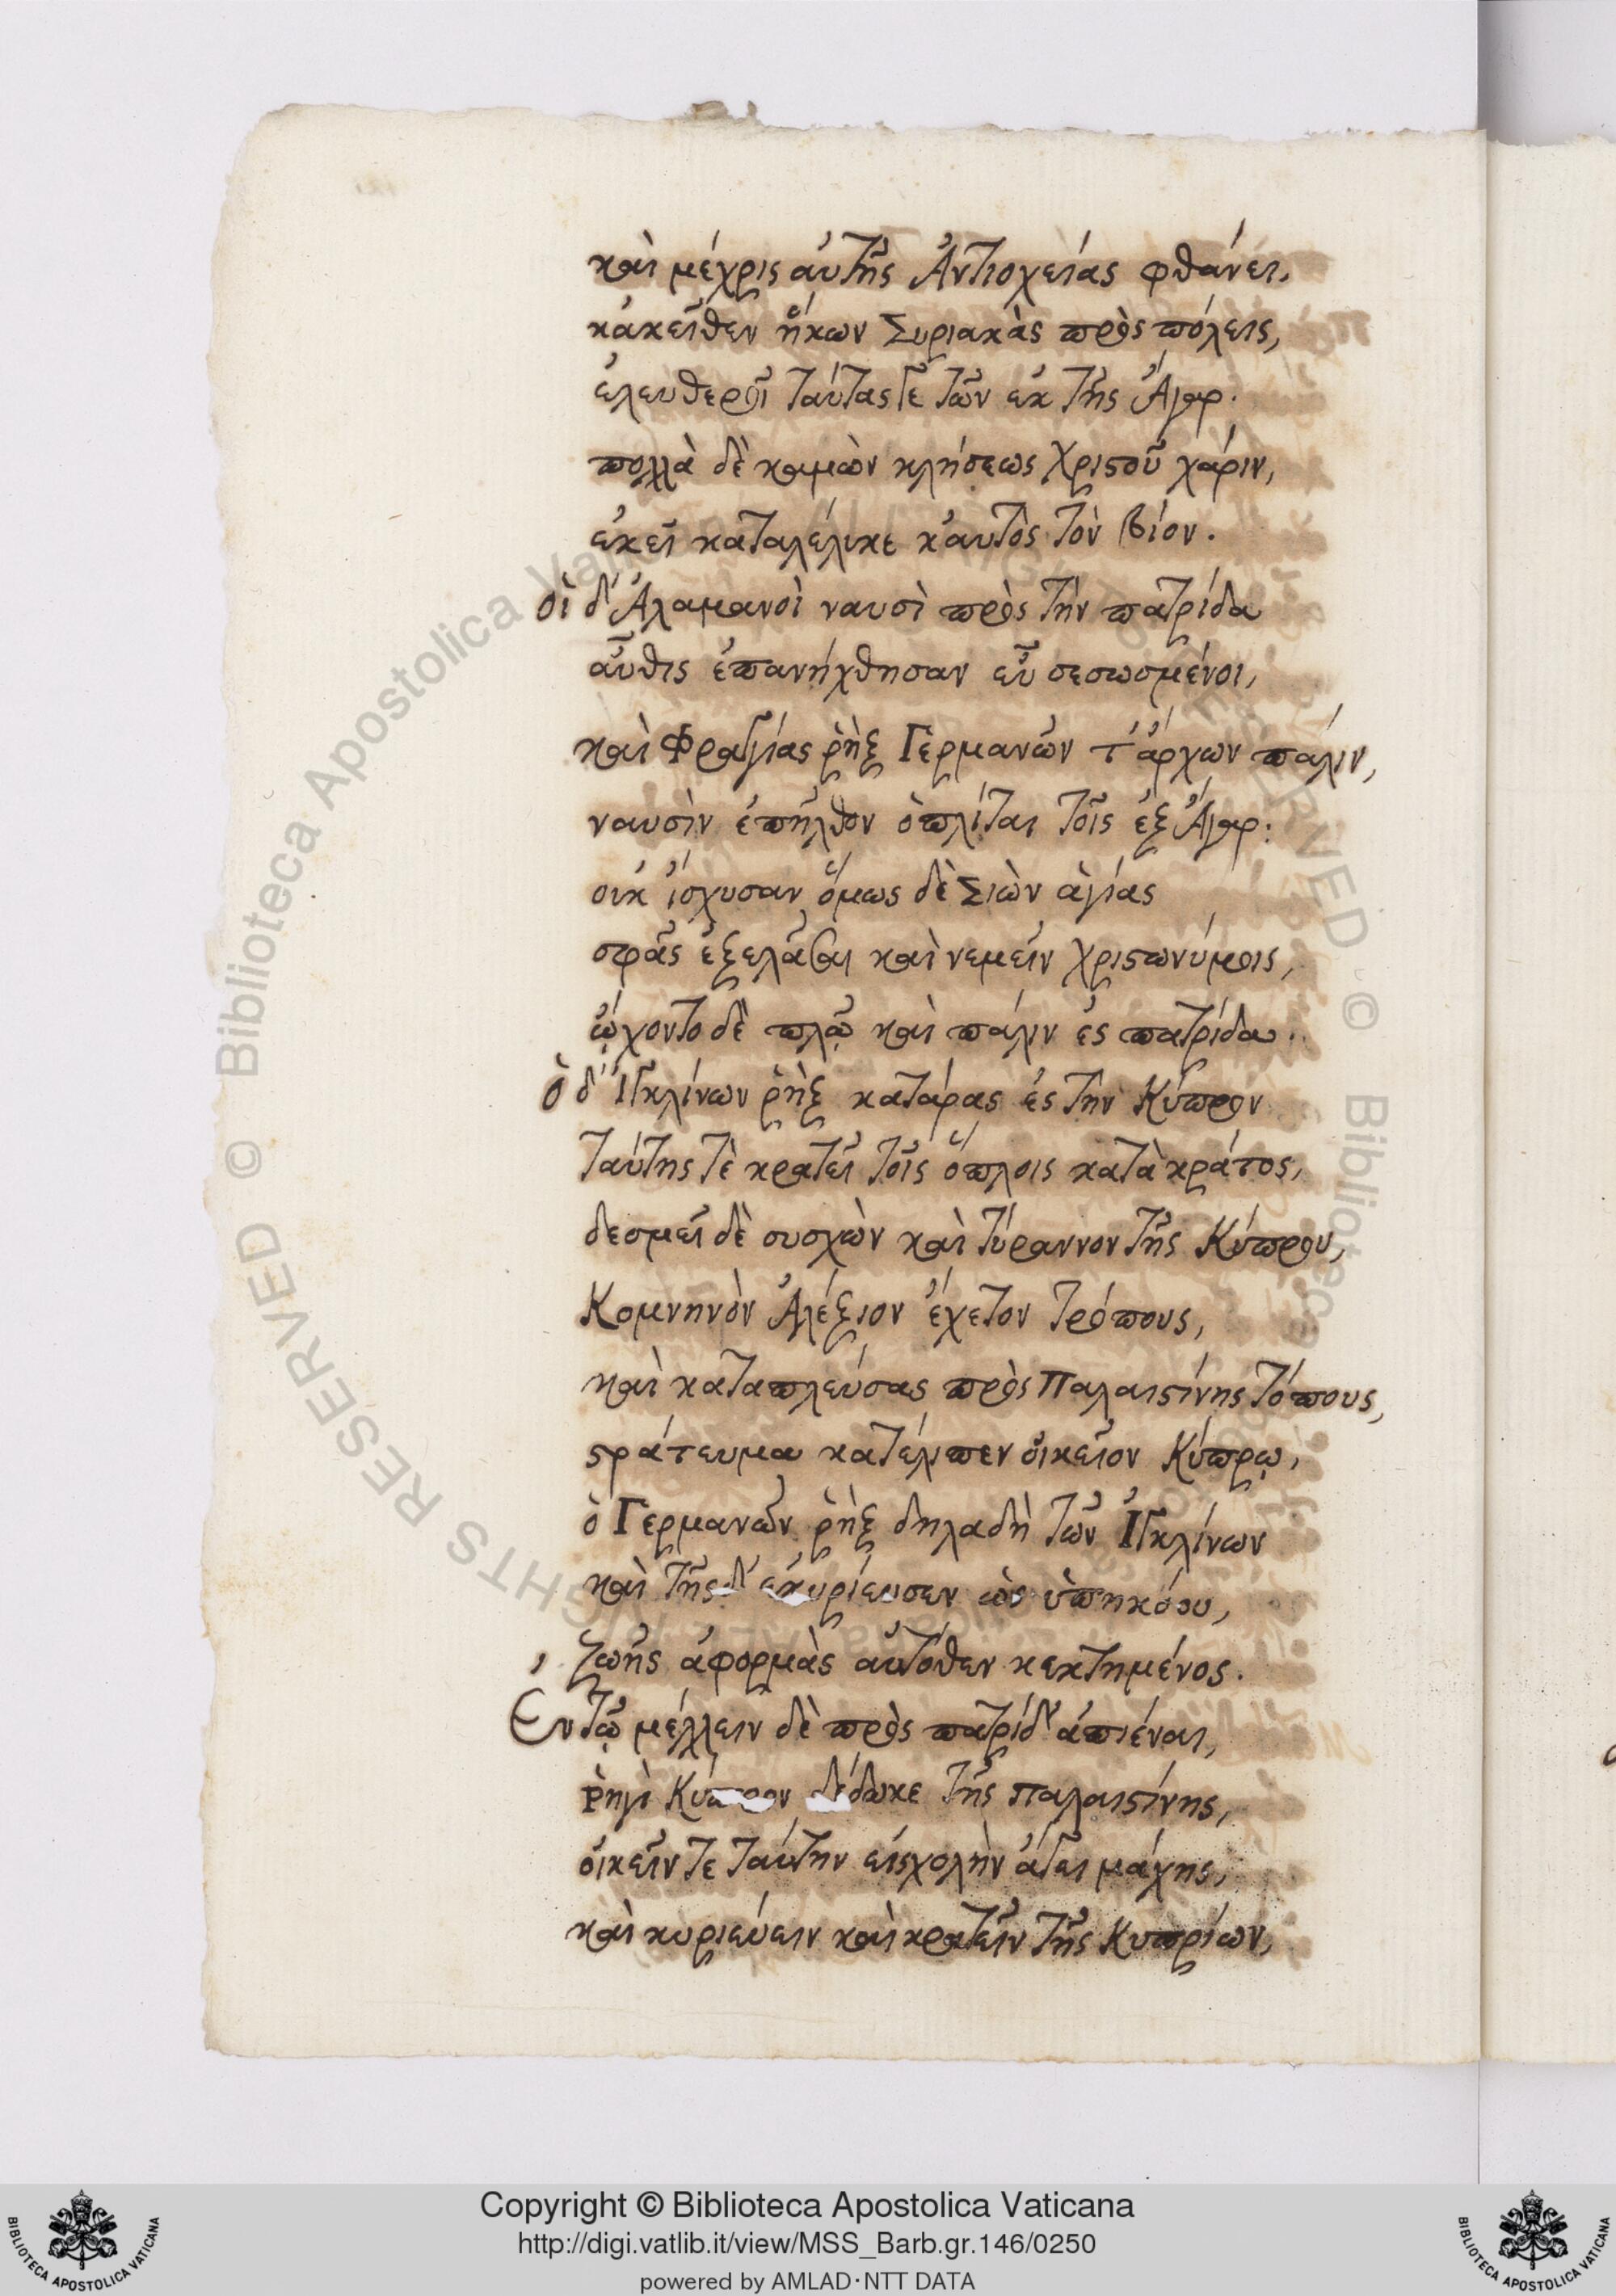 καὶ μέχρις αὐτῆς Ἀντιοχείας φθάνει,
κἀκεῖθεν ἥκων Συριακὰς πρὸς πόλεις,
ἐλευθεροῖ ταύτας γε τῶν ἐκ τῆς Ἄγαρ.
πολλὰ δὲ καμὼν κλήσεως Χριστοῦ χάριν,
ἐκεῖ καταλέλιπε καὐτὸς τὸν βίον.
οἱ δ' Ἀλαμανοὶ ναυσὶ πρὸς τὴν πατρίδα
αὖθις ἐπανήχθησαν εὖ σεσωσμένοι,
καὶ Φραγγίας ῥὴξ Γερμανῶν τ' ἄρχων πάλιν,
ναυσὶν ἐπῆλθον ὁπλίται τοῖς ἐξ Ἄγαρ.
οὐκ ἴσχυσαν ὅμως δὲ Σιὼν ἁγίας
σφᾶς ἐξελᾶσαι καὶ νεμεῖν χριστωνύμοις,
ᾤχοντο δὲ πλῷ καὶ πάλιν ἐς πατρίδα.
ὁ δ' Ἰγκλίνων ῥὴξ κατάρας ἐς τὴν Κύπρον
ταύτης τὲ κρατεῖ τοῖς ὅπλοις κατὰ κράτος,
δεσμεῖ δὲ συσχὼν καὶ τύραννον τῆς Κύπρου,
Κομνηνὸν Ἀλέξιον ἔχετον τρόπους,
καὶ καταπλεύσας πρὸς Παλαιστίνης τόπους,
στράτευμα κατέλιπεν οἰκεῖον Κύπρῳ,
ὁ Γερμανῶν ῥὴξ δηλαδὴ τῶν Ἰγκλίνων
καὶ τῆς δ' ἐκυρίευσεν ὡς ὑπηκόου,
ζωῆς ἀφορμὰς αὐτόθεν κεκτημένος.
Ἐν τῷ μέλλειν δὲ πρὸς πατρίδ' ἀπιέναι,
ῥηγὶ Κύπρον δέδωκε τῆς Παλαιστίνης,
οἰκεῖν τε ταύτην εἰ σχολὴν ἄγει μάχης,
καὶ κυριεύειν καὶ κρατεῖν τῆς Κυπρίων,
Copyright © Biblioteca Apostolica Vaticana
http://digi.vatlib.it/view/MSS_Barb.gr.146/0250
powered by AMLAD·NTT DATA